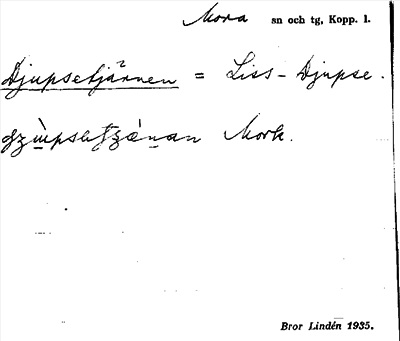 Mora sn och tg, Kopp. l.
Djupsetjärnen = Liss-Djupse.
Mork.
Bror Lindén 1935.